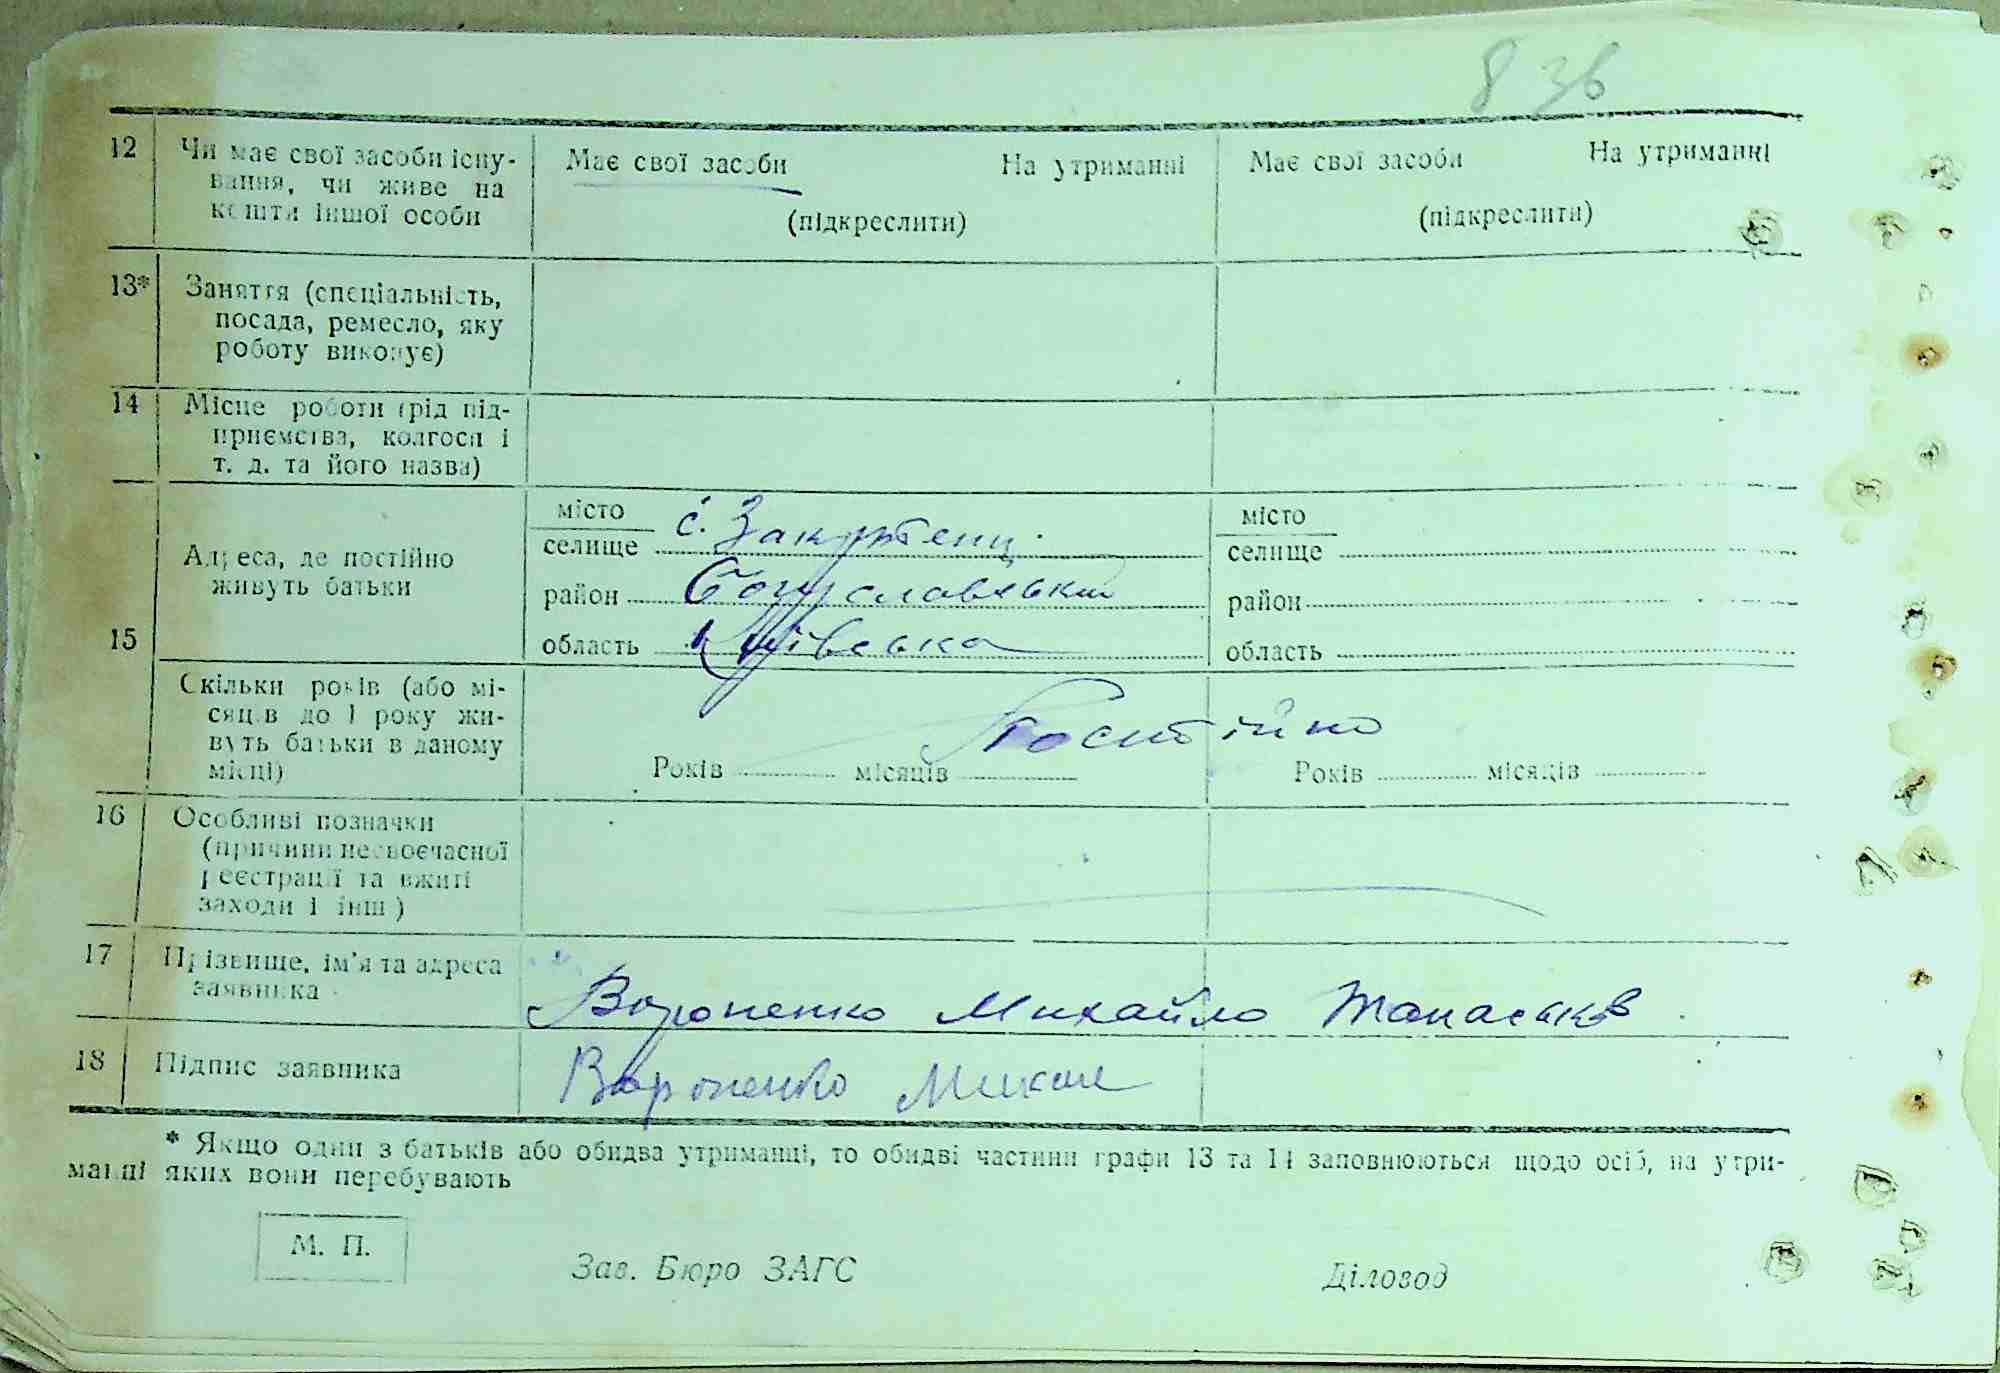 8 зв
12 Чи має свої засоби існу- Має свої засоби На утриманні Має свої засоби На утриманні
вання, чи живе на
кошти іншої особи (підкреслити) (підкреслити)
13* Заняття (спеціальність,
посада, ремесло, яку
роботу виконує)
14 Місце роботи (рід під-
приємства, колгосп і
т. д. та його назва)
15 Адреса, де постійно
живуть батьки
місто
селище с. Закутенц
район Богуславський
область Київська
місто
селище
район
область
Скільки років (або мі-
сяців до 1 року жи-
вуть батьки в даному
місці)
Постійно
Років місяців Років місяців
16 Особливі позначки
(причини несвоєчасної
реєстрації та вжиті
заходи і інш)
17 Прізвище, ім'я та адреса
заявника
Вороненко Михайло
18 Підпис заявника Вороненко
* Якщо один з батьків або обидва утриманці, то обидві частини графи 13 та 14 заповнюються щодо осіб, на утри-
манні яких вони перебувають
М. П.
Зав. Бюро ЗАГС Діловод